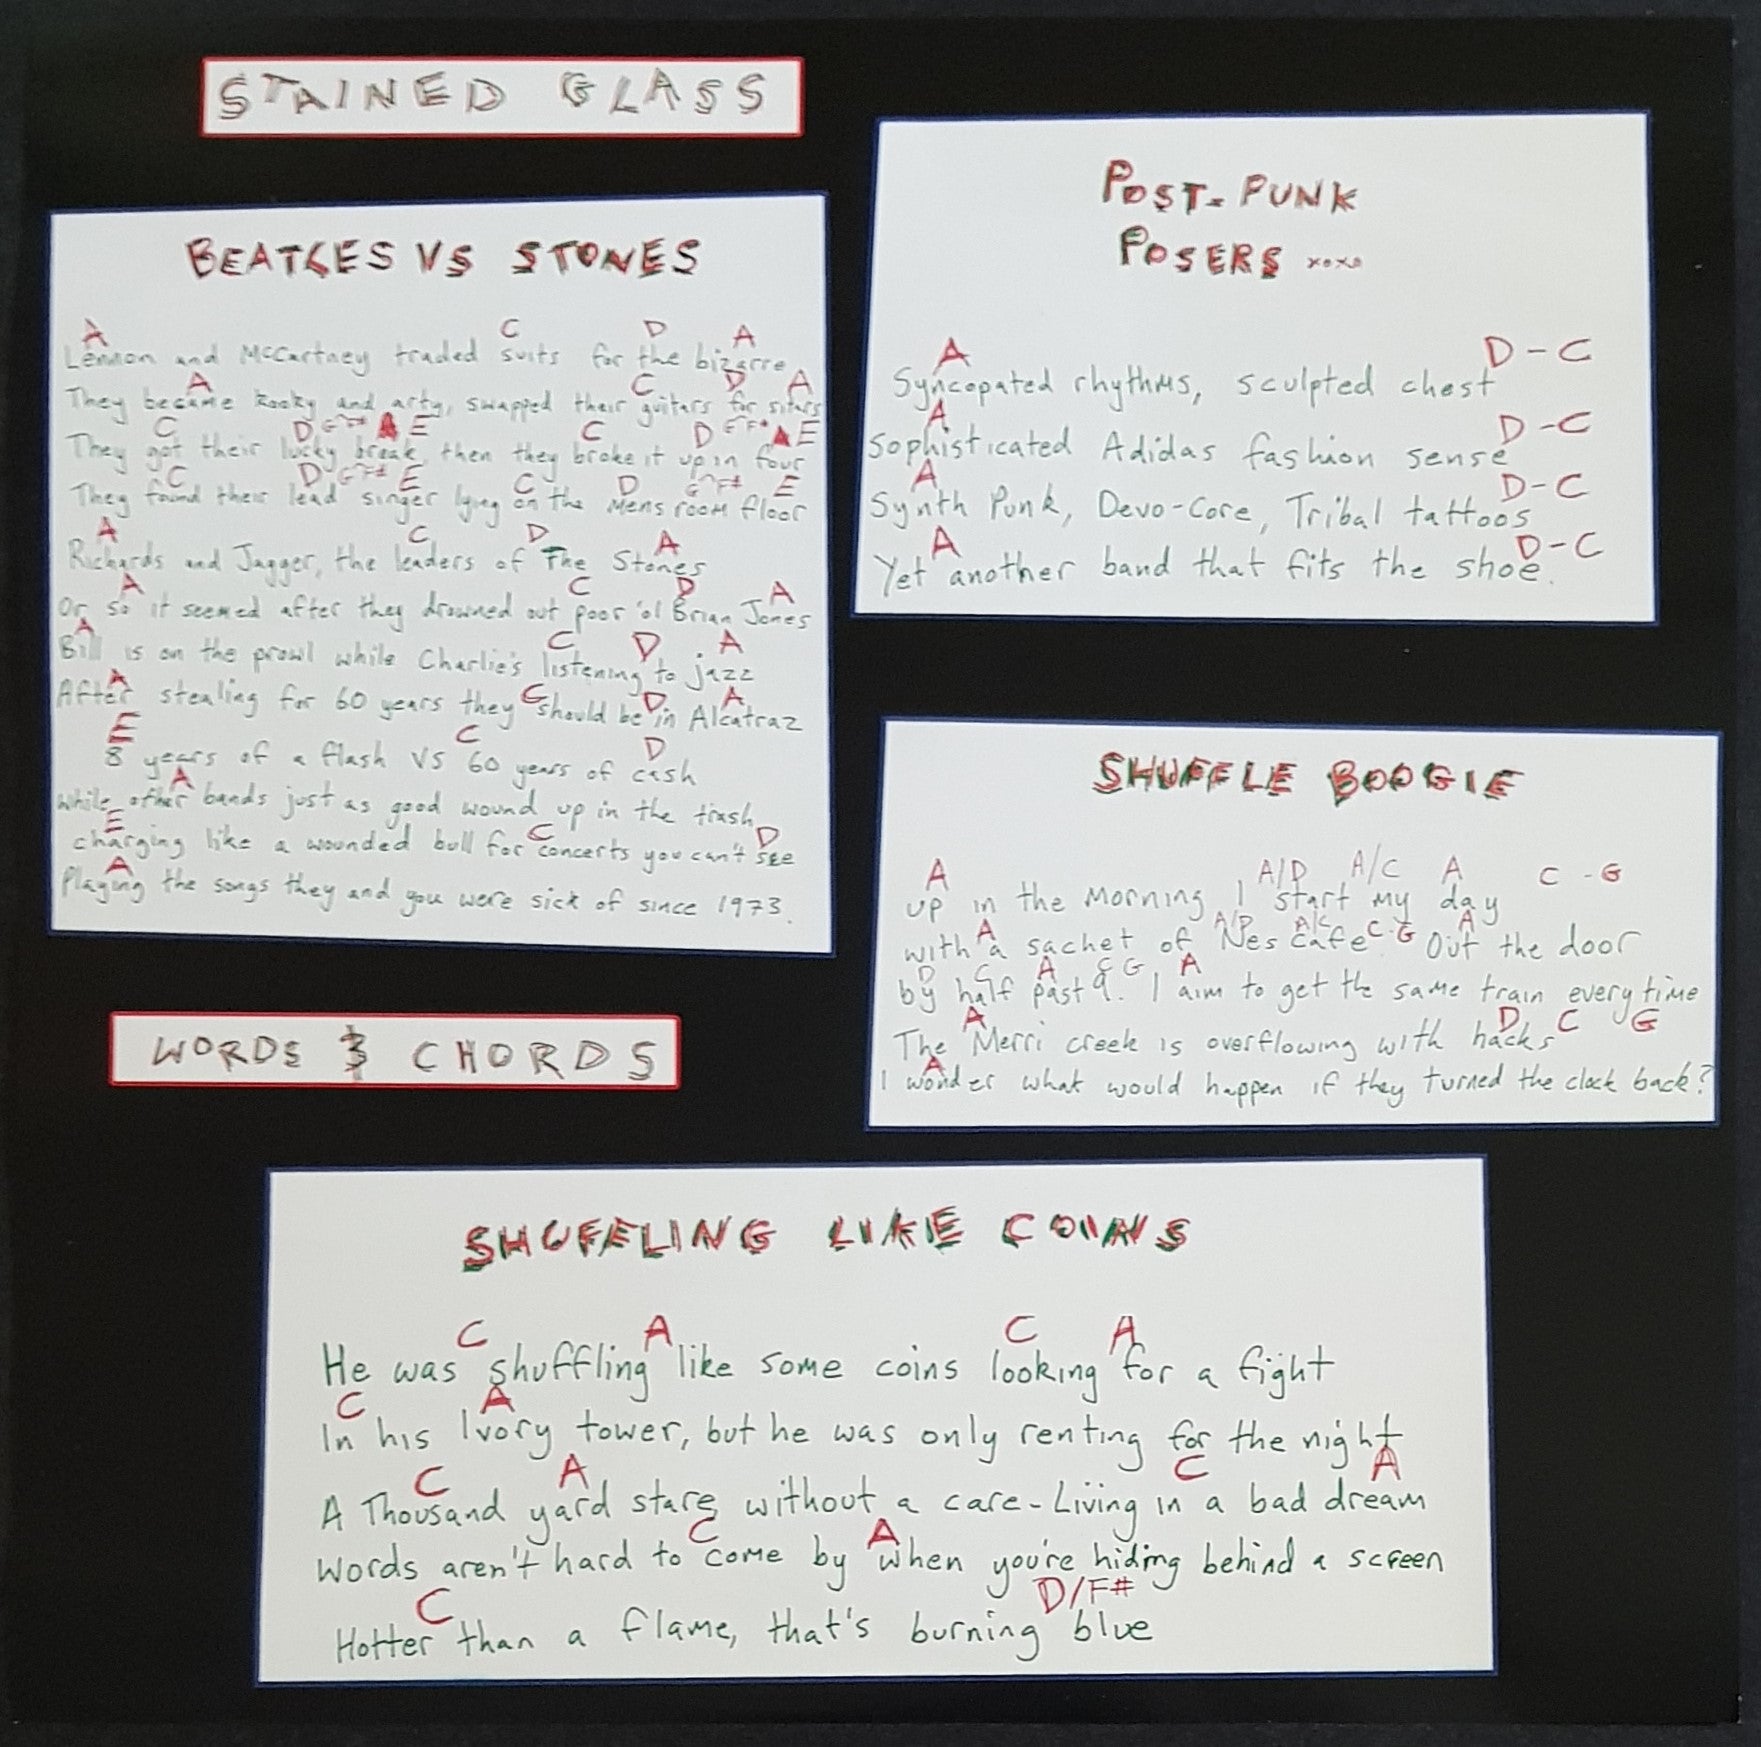 STAINED GLASS
BEATLES VS STONES
A C D A
Lennon and McCartney traded suits for the bizarre
A C D A
They became kooky and arty, swapped their guitars for sitars
C D G F# A E C D G F# A E
They got their lucky break, then they broke it up in four
C D G F# E C D G F# E
They found their lead singer lying on the Mens room floor
A C D A
Richards and Jagger, the leaders of The Stones
A C D A
Or so it seemed after they drowned out poor 'ol Brian Jones
A C D A
Bill is on the prowl while Charlie's listening to jazz
A C D A
After stealing for 60 years they should be in Alcatraz
E C D
8 years of a flash VS 60 years of cash
A
while other bands just as good wound up in the trash
E C D
charging like a wounded bull for concerts you can't see
A
Playing the songs they and you were sick of since 1973.
POST-PUNK
POSERS xoxo
A D-C
Syncopated rhythms, sculpted chest
A D-C
Sophisticated Adidas fashion sense
A D-C
Synth Punk, Devo-Core, Tribal tattoos
A D-C
Yet another band that fits the shoe.
SHUFFLE BOOGIE
A A/D A/C A C - G
Up in the Morning I start my day
A A/D A/C C-G A
with a sachet of Nes Cafe Out the door
D C A C G A
by half past 9. I aim to get the same train everytime
A D C G
The Merri creek is overflowing with hacks
A
I wonder what would happen if they turned the clock back?
WORDS & CHORDS
SHUFFLING LIKE COINS
C A C A
He was shuffling like some coins looking for a fight
C A
In his Ivory tower, but he was only renting for the night
C A C A
A Thousand yard stare without a care - Living in a bad dream
C A
Words aren't hard to come by when you're hiding behind a screen
C D/F#
Hotter than a flame, that's burning blue